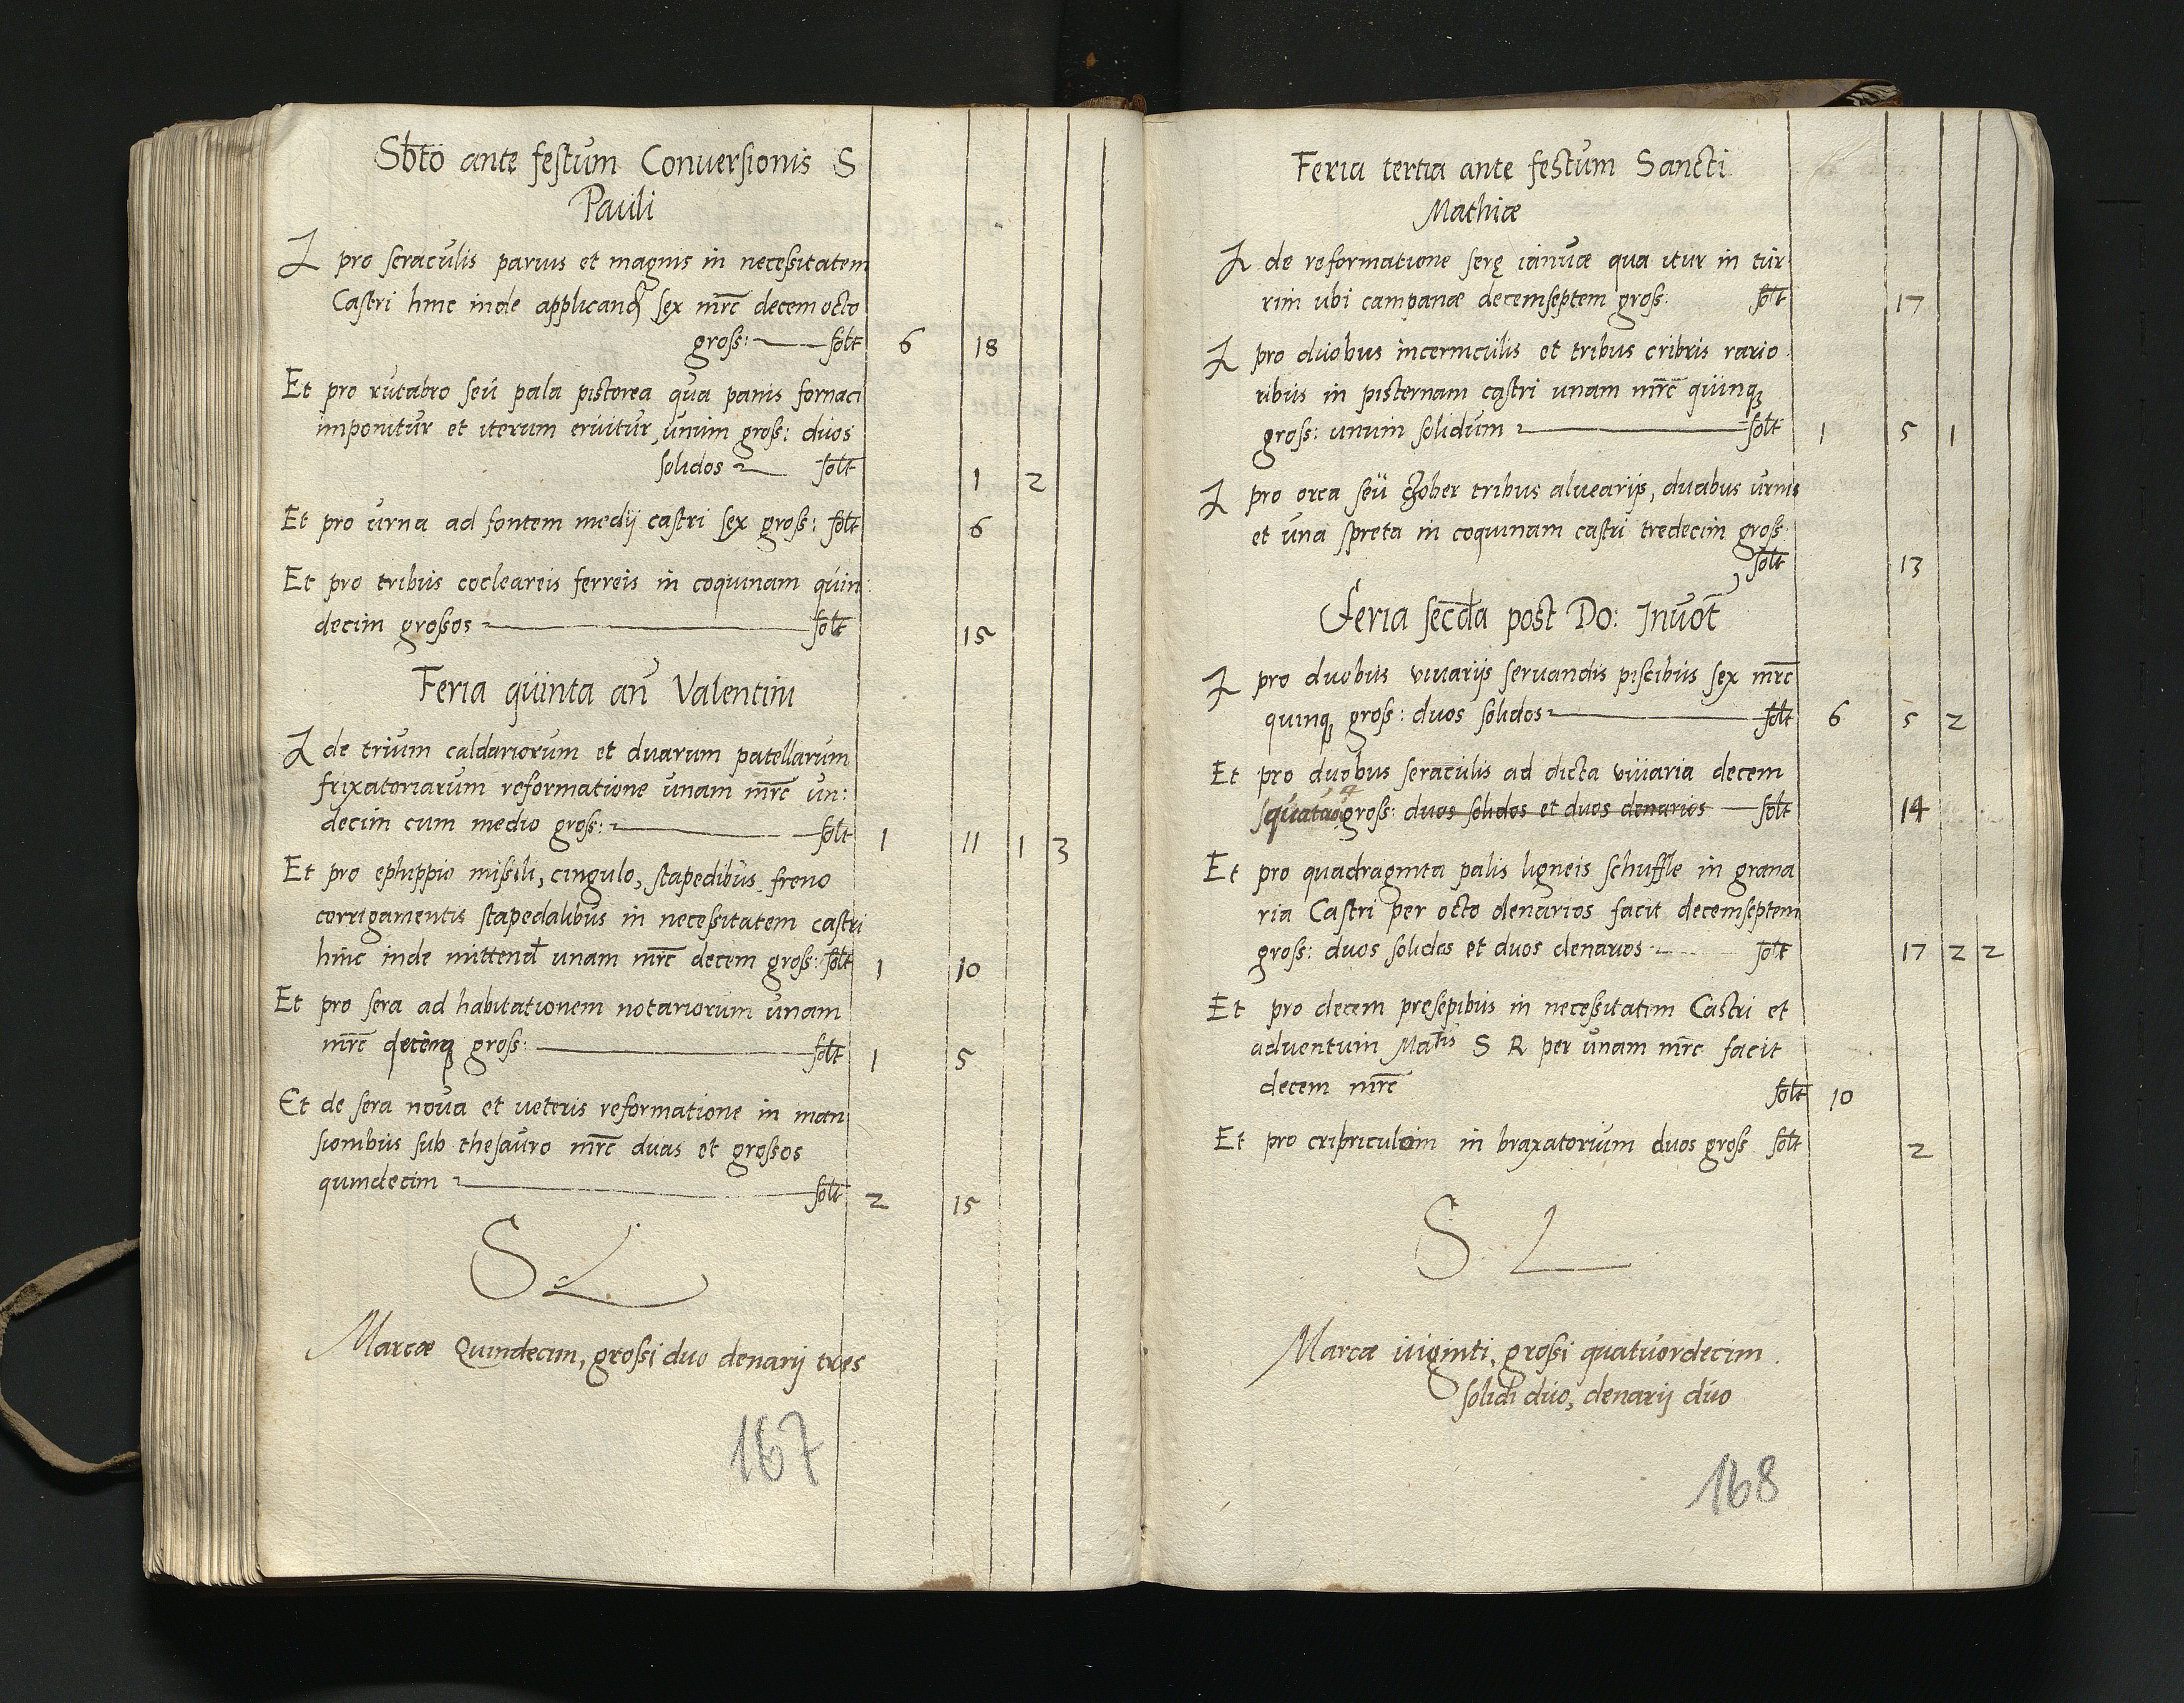 Sbto ante festum Conversionis S
Pauli
I pro seraculis parvis et magnis in necessitatem
Castri hinc inde applicand sex mrc decem octo
gross: solt 6 18
Et pro rutabro seu pala pistorea qua panis fornaci
imponitur et iterum eruitur, unum gross: duos
solidos solt 1 2
Et pro urna ad fontem medij castri sex gross: solt 6
Et pro tribus cocleareis ferreis in coquinam quin
decim grossos solt 15
Feria quinta an Valentini
I de trium caldariorum et duarum patellarum
frixatoriarum reformatione unam mrc un:
decim cum medio gross: solt 1 11 1 3
Et pro ephippio missili, cingulo, stapedibus freno
corrigamentis stapedalibus in necessitatem castri
hinc inde mittend unam mrc decem gross: solt 1 10
Et pro sera ad habitationem notariorum unam
mrc gross: solt 1 5
Et de sera nova et veteris reformatione in man
sionibus sub thesauro mrc duas et grossos
quindecim solt 2 15
S L
Marcæ Quindecim, grossi duo denarij tres
167
Feria tertia ante festum Sancti
Mathiæ
I de reformatione serę ianuæ qua itur in tur
rim ubi campanæ decemseptem gross: solt 17
I pro duobus incerniculis et tribus cribris rario
ribus in pisternam castri unam mrc quinq
gross: unum solidum solt 1 5 1
I pro orca seu czober tribus alvearijs, duabus urnis
et una spreta in coquinam castri tredecim gross
solt 13
Feria secda post Do: Invot
I pro duobus vivarijs servandis piscibus sex mrc
quinq gross: duos solidos solt 6 5 2
Et pro duobus seraculis ad dicta vivaria decem
gross: duos solidos et duos denarios solt 14
Et pro quadraginta palis ligneis schuffle in grana
ria Castri per octo denarios facit decemseptem
gross: duos solidos et duos denarios solt 17 2 2
Et pro decem presepibus in necessitatem Castri et
adventum Matis S R per unam mrc facit
decem mrc solt 10
Et pro cribriculum in braxatorium duos gross solt 2
S L
Marcæ viginti, grossi quatuordecim
solidi duo, denarij duo
168